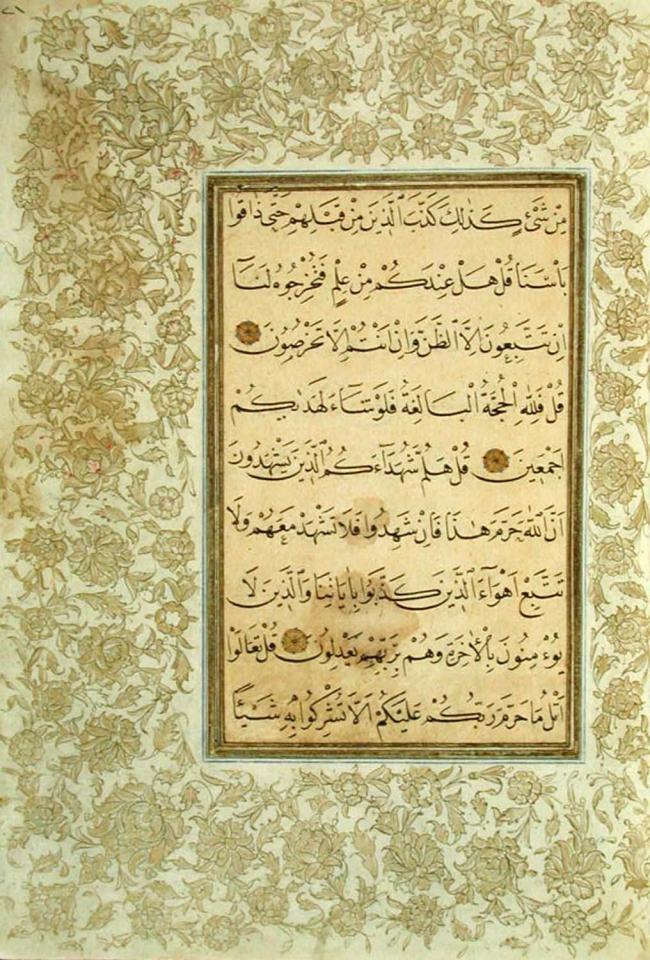 مِنْ شَىْءٍ كَذٰلِكَ كَذَّبَ الَّذِينَ مِنْ قَبْلِهِمْ حَتّٰى ذَاقُوا
بَاْسَنَا قُلْ هَلْ عِنْدَكُمْ مِنْ عِلْمٍ فَتُخْرِجُوهُ لَنَا
اِنْ تَتَّبِعُونَ اِلَّا الظَّنَّ وَاِنْ اَنْتُمْ اِلَّا تَخْرُصُونَ
قُلْ فَلِلّٰهِ الْحُجَّةُ الْبَالِغَةُ فَلَوْ شَاءَ لَهَدٰيكُمْ
اَجْمَعِينَ قُلْ هَلُمَّ شُهَدَاءَكُمُ الَّذِينَ يَشْهَدُونَ
اَنَّ اللّٰهَ حَرَّمَ هٰذَا فَاِنْ شَهِدُوا فَلَا تَشْهَدْ مَعَهُمْ وَلَا
تَتَّبِعْ اَهْوَاءَ الَّذِينَ كَذَّبُوا بِاٰيَاتِنَا وَالَّذِينَ لَا
يُؤْمِنُونَ بِالْاٰخِرَةِ وَهُمْ بِرَبِّهِمْ يَعْدِلُونَ قُلْ تَعَالَوْا
اَتْلُ مَا حَرَّمَ رَبُّكُمْ عَلَيْكُمْ اَلَّا تُشْرِكُوا بِهِ شَيْئًا